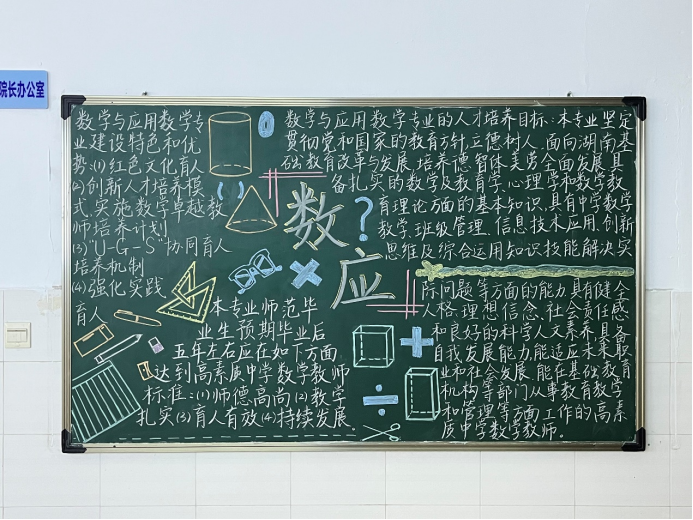 院长办公室
数学与应用数学专
业建设特色和优
势:(1)红色文化育人
(2)创新人才培养模
式,实施数学卓越教
师培养计划
(3)“U-G-S”协同育人
培养机制
(4)强化实践
育人
本专业师范毕
业生预期毕业后
五年左右应在如下方面
达到高素质中学数学教师
标准:(1)师德高尚(2)数学
扎实(3)育人有效(4)持续发展。
数?
应
数学与应用数学专业的人才培养目标:本专业坚定
贯彻党和国家的教育方针,立德树人,面向湖南基
础教育改革与发展,培养德智体美劳全面发展,具
备扎实的数学及教育学,心理学和数学教
育理论方面的基本知识,具有中学数学
教学,班级管理,信息技术应用,创新
思维及综合运用知识技能解决实
际问题等方面的能力,具有健全
人格,理想,信念,社会责任感
和良好的科学人文素养,具备
自我发展能力,能适应未来职
业和社会发展,能在基础教育
机构等部门从事教育教学
和管理等方面工作的高素
质中学数学教师。